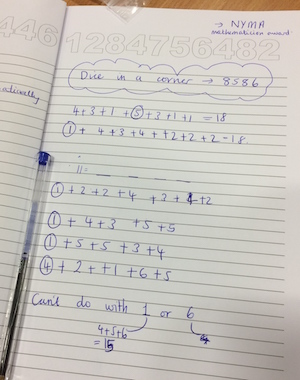 → NYMA
mathematician award
446 1284756482
Dice in a corner → 8586
4+3+1 +⑤+3+1+1 = 18
① + 4+3+4 ++2+2+2 = 18.
11 = _ _ _ _ _ _
① +2+2+4 +3+4+2
① +4+3 +5+5
① +5+5+3+4
④ +2++1+6+5
Can't do with 1 or 6
4+5+6
= 15